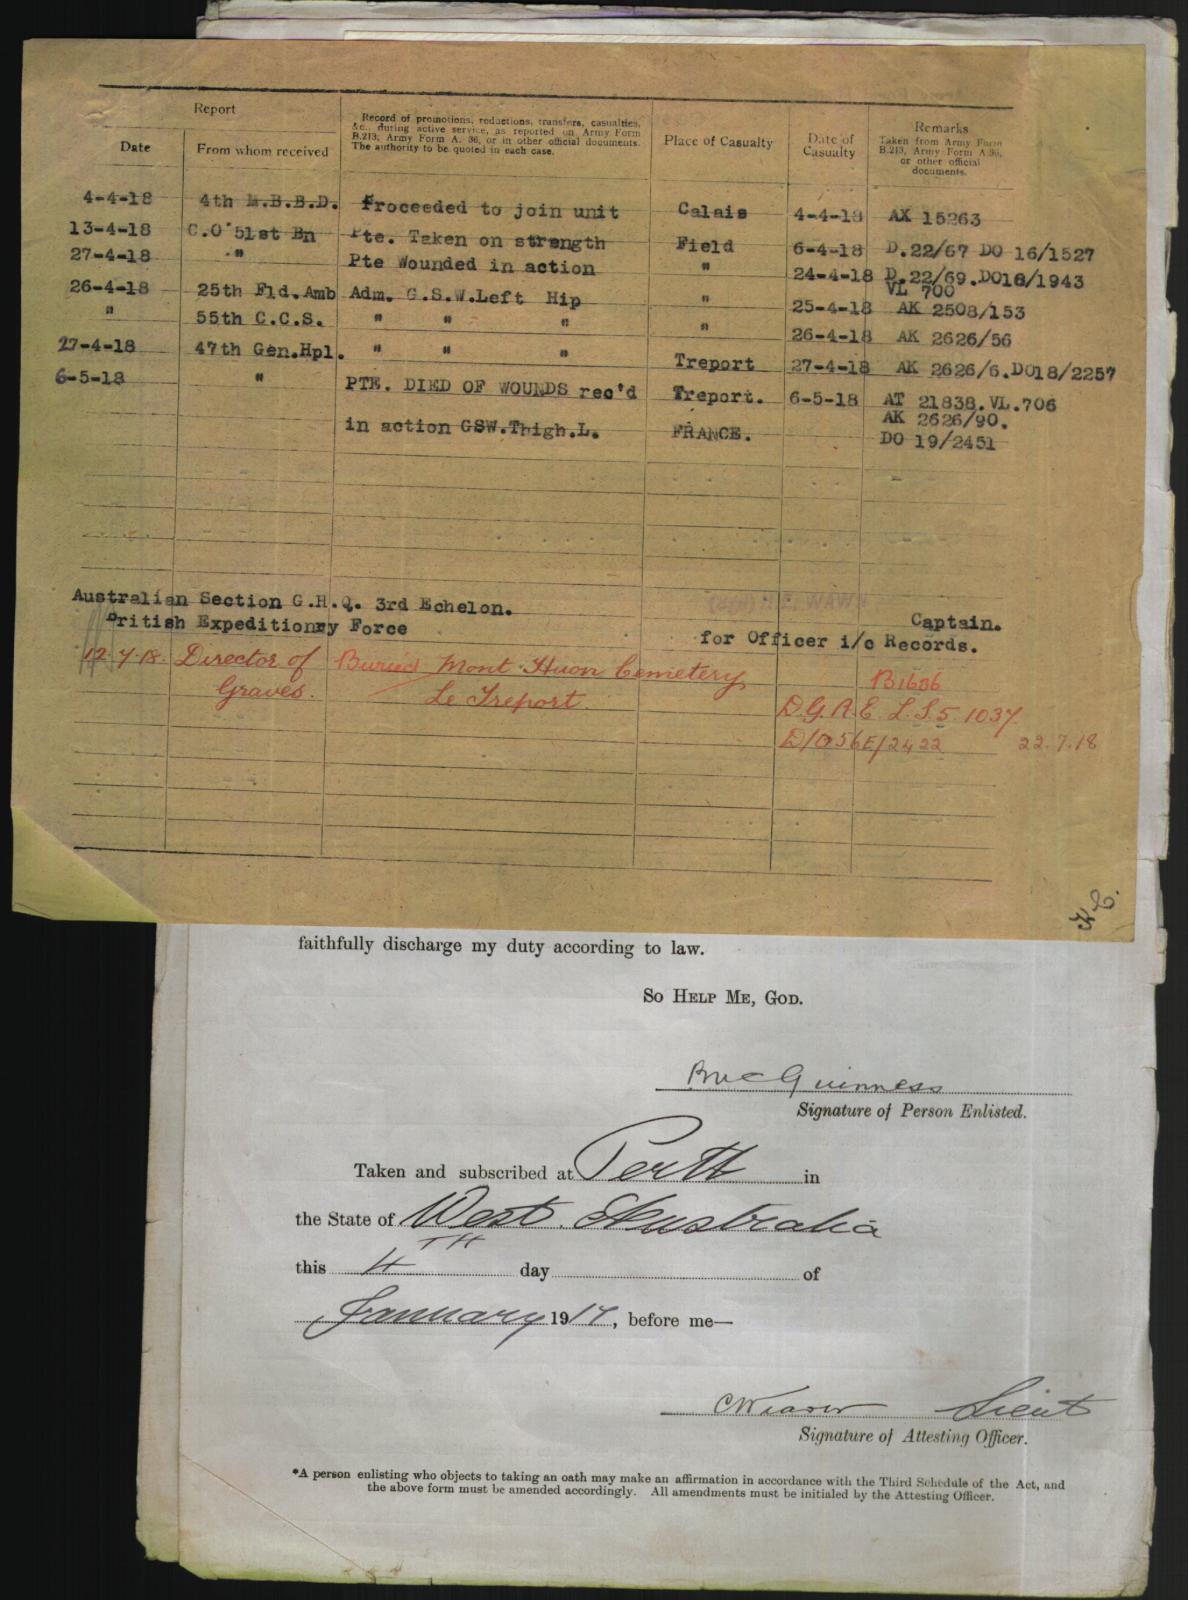 Report
Date
From whom received
Record of promotions, reductions, transfers, casualties, &c., during active service, as reported on Army Form B.213, Army Form A. 36, or in other official documents. The authority to be quoted in each case.
Place of Casualty
Date of Casualty
Remarks
Taken from Army Form B.213, Army Form A.36, or other official documents.
4-4-18 4th M.B.B.D. Proceeded to join unit Calais 4-4-18 AX 15263
13-4-18 C.O 51st Bn Pte. Taken on strength Field 6-4-18 D.22/67 DO 16/1527
27-4-18 " Pte Wounded in action " 24-4-18 D.22/69.DO18/1943
VL 700
26-4-18 25th Fld.Amb Adm. G.S.W.Left Hip " 25-4-18 AK 2508/153
" 55th C.C.S. " " " " 26-4-18 AK 2626/56
27-4-18 47th Gen.Hpl. " " " Treport 27-4-18 AK 2626/6.DO18/2257
6-5-18 " PTE. DIED OF WOUNDS rec'd Treport. 6-5-18 AT 21838.VL.706
AK 2626/90.
in action GSW.Thigh.L. FRANCE. DO 19/2451
Australian Section G.H.Q. 3rd Echelon.
British Expeditionry Force
WAWN
Captain.
for Officer i/c Records.
12.7.18. Director of Graves. Buried Mont Huon Cemetery B1636
Le Treport D.G.R.E. L.S.5 1037
22.7.18
faithfully discharge my duty according to law.
So Help Me, God.
B McGuinness
Signature of Person Enlisted.
Taken and subscribed at Perth in
the State of West Australia
this 4TH day of
January 1917, before me—
C Weaver Lieut
Signature of Attesting Officer.
*A person enlisting who objects to taking an oath may make an affirmation in accordance with the Third Schedule of the Act, and
the above form must be amended accordingly. All amendments must be initialed by the Attesting Officer.